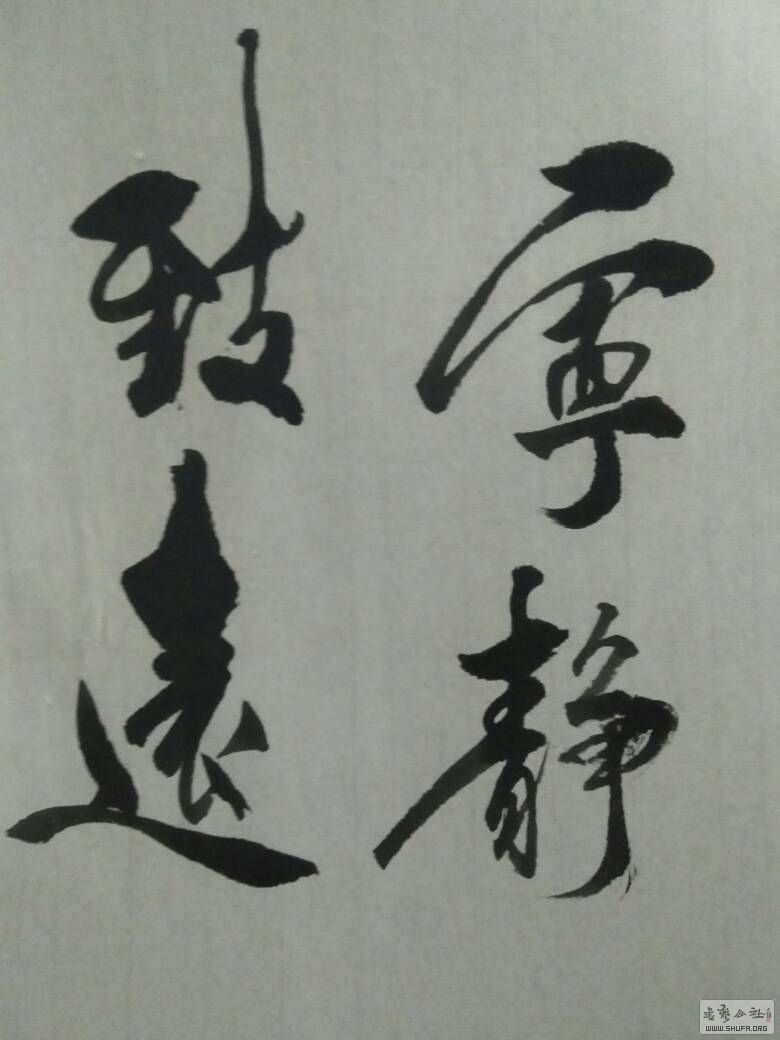 寧静
致遠
书艺公社
WWW.SHUFA.ORG